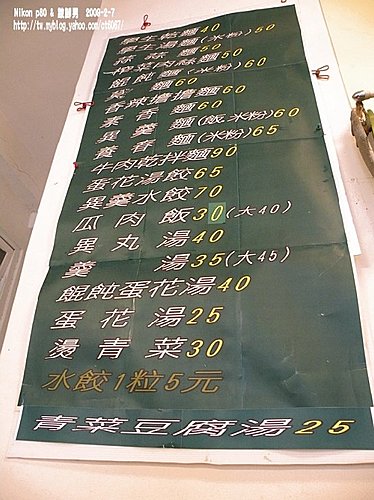 Nikon p80 & 散鮮男 2009-2-7
http://tw.myblog.yahoo.com/ct6067/
學生乾麵40
學生湯麵50
麻絲麵(米粉)50
榨菜肉絲麵50
餛飩麵(米粉)60
羹麵60
香辣擔擔麵60
素香麵60
異羹麵(飯.米粉)60
養春麵(米粉)65
牛肉乾拌麵90
蛋花湯餃65
異羹水餃70
瓜肉飯30(大40)
異丸湯40
羹湯35(大45)
餛飩蛋花湯40
蛋花湯25
燙青菜30
水餃1粒5元
青菜豆腐湯25